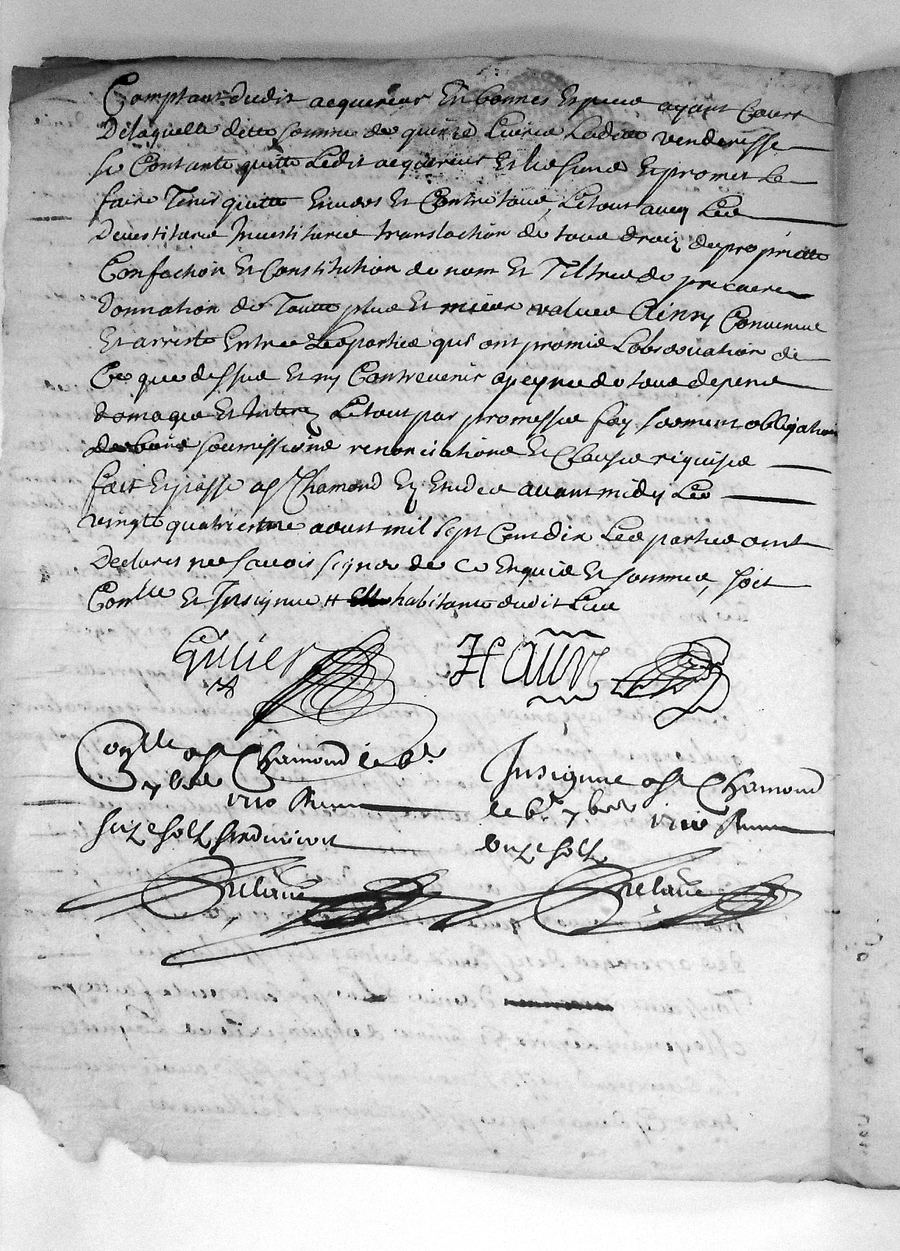 Comptant dudit acquereur En bonnes Especes ayant Cours
De laquelle ditte somme de quinze Livres Laditte venderesse
se Contante quitte Ledit acquereur Et les siens Et promet Le
faire Tenir quitte Envers Et Contre tous, Le tout avec Les
Devestitures Investitures translaction de tous droiz de propriette
Confection Et Constitution de nom Et Tiltres de precaire
donnation de Toutte plus Et mieux values Ainsy Convenu
Et arresté Entre Les parties qui ont promis L'observation de
Ce que dessus Et ny Contrevenir a peyne de tous depens
domages Et Interez Le tout par promesse foy serment obligation
de biens soumissions renonciations Et Clauses requises
fait Et passé a St Chamond Ez Etudes avant midy Le
vingt quatrieme aoust mil sept Cent dix Les parties ont
Declarés ne savoir signer de Ce Enquis Et sommés, soit
Conlle Et Insignue # habitants dudit Lieu
Conlle a St Chamond le 6e
7bre 1710 Reçu
six solz
Insignue a St Chamond
le 6e 7bre 1710 Reçu
onze solz